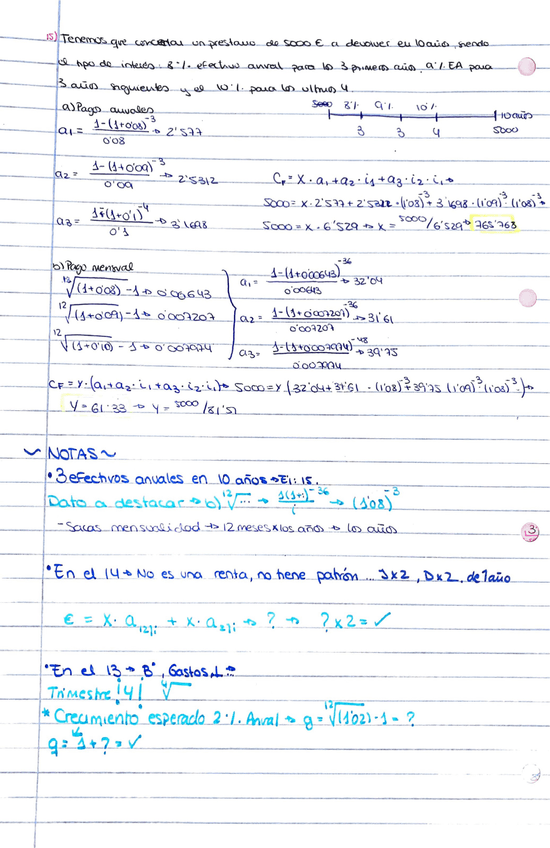 15) Tenemos que concertar un prestamo de 5000 € a devolver en 10 años, siendo
el tipo de interés: 8% efectivo anual para los 3 primeros años, 9% EA para
3 años siguientes y el 10% para los ultimos 4.
a) Pago anuales
5000 8% 9% 10% 10 años
3 3 4 5000
a1 = 1-(1+0'08)^-3 / 0'08 → 2'577
a2 = 1-(1+0'09)^-3 / 0'09 → 2'5312
a3 = 1-(1+0'1)^-4 / 0'1 → 3'1698
CF = x · a1 + a2 · i1 + a3 · i2 · i1 →
5000 = x · 2'577 + 2'5312 · (1'08)^-3 + 3'1698 · (1'09)^-3 · (1'08)^-3 →
5000 = x · 6'529 → x = 5000/6'529 → 765'768
b) Pago mensual
12√(1+0'08) - 1 → 0'00643
12√(1+0'09) - 1 → 0'007207
12√(1+0'10) - 1 → 0'007974
a1 = 1-(1+0'00643)^-36 / 0'00643 → 32'04
a2 = 1-(1+0'007207)^-36 / 0'007207 → 31'61
a3 = 1-(1+0'007974)^-48 / 0'007974 → 39'75
CF = Y · (a1 + a2 · i1 + a3 · i2 · i1) → 5000 = Y (32'04 + 31'61 · (1'08)^-3 + 39'75 (1'09)^-3 · (1'08)^-3) →
Y = 61'33 → Y = 5000/81'51
~ NOTAS ~
• 3 efectivos anuales en 10 años → EJ: 15.
Dato a destacar → b) 12√... → 1(1+i)^-36 / i → (1'08)^-3
- Sacas mensualidad → 12 meses x los años → los años
3
• En el 14 → No es una renta, no tiene patrón ... J x 2, D x 2, de 1 año
€ = x · a12]i + x · a2]i → ? → ? x 2 = ✓
• En el 13 → Bº, Gastos,
Trimestre ¡4! 4√
* Crecimiento esperado 2% Anual → g = 12√(1'02) - 1 = ?
q = 1 + ? = ✓